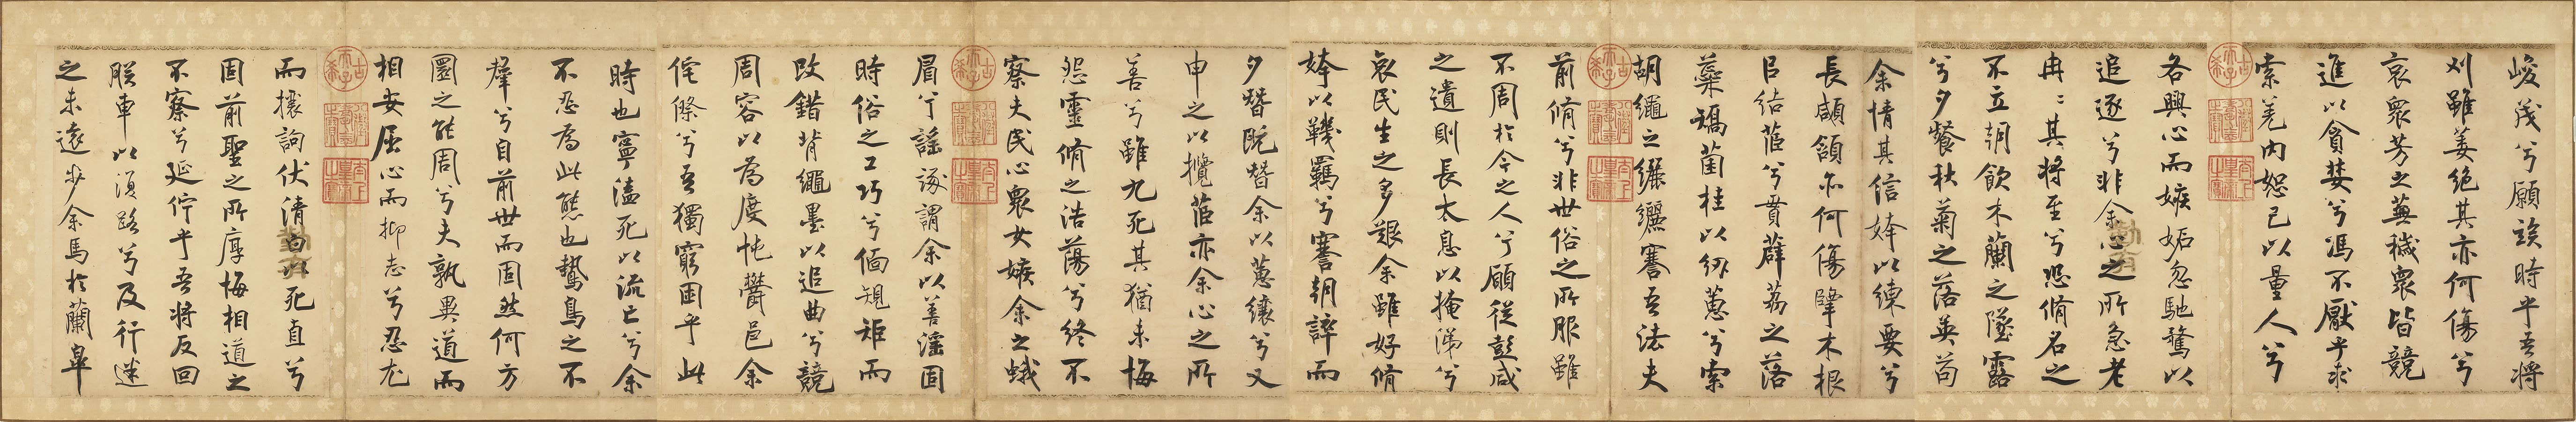 峻茂兮願竢時乎吾將
刈雖萎絕其亦何傷兮
哀眾芳之蕪穢眾皆競
進以貪婪兮馮不厭乎求
索羌內恕己以量人兮
各興心而嫉妬忽馳騖以
追逐兮非余心之所急老
冉〻其將至兮恐脩名之
不立朝飲木蘭之墜露
兮夕餐秋菊之落英苟
余情其信姱以練要兮
長顑頷亦何傷擥木根
㠯結茝兮貫薜荔之落
蘂矯菌桂以紉蕙兮索
胡繩之纚纚謇吾法夫
前脩兮非世俗之所服雖
不周於今之人兮願從彭咸
之遺則長太息以掩涕兮
哀民生之多艱余雖好脩
姱以鞿羈兮謇朝誶而
夕替既替余以蕙纕兮又
申之以攬茝亦余心之所
善兮雖九死其猶未悔
怨靈脩之浩蕩兮終不
察夫民心眾女嫉余之蛾
眉兮謠諑謂余以善淫固
時俗之工巧兮偭規矩而
改錯背繩墨以追曲兮競
周容以為度忳鬱邑余
侘傺兮吾獨窮困乎此
時也寧溘死以流亡兮余
不忍為此態也鷙鳥之不
羣兮自前世而固然何方
圜之能周兮夫孰異道而
相安屈心而抑志兮忍尤
而攘詢伏清白以死直兮
固前聖之所厚悔相道之
不察兮延佇乎吾將反回
朕車以復路兮及行迷
之未遠步余馬於蘭皐